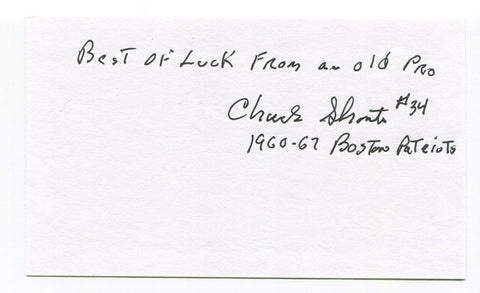 Best of Luck From an old Pro
Chuck Shonta #34
1960-67 Boston Patriots